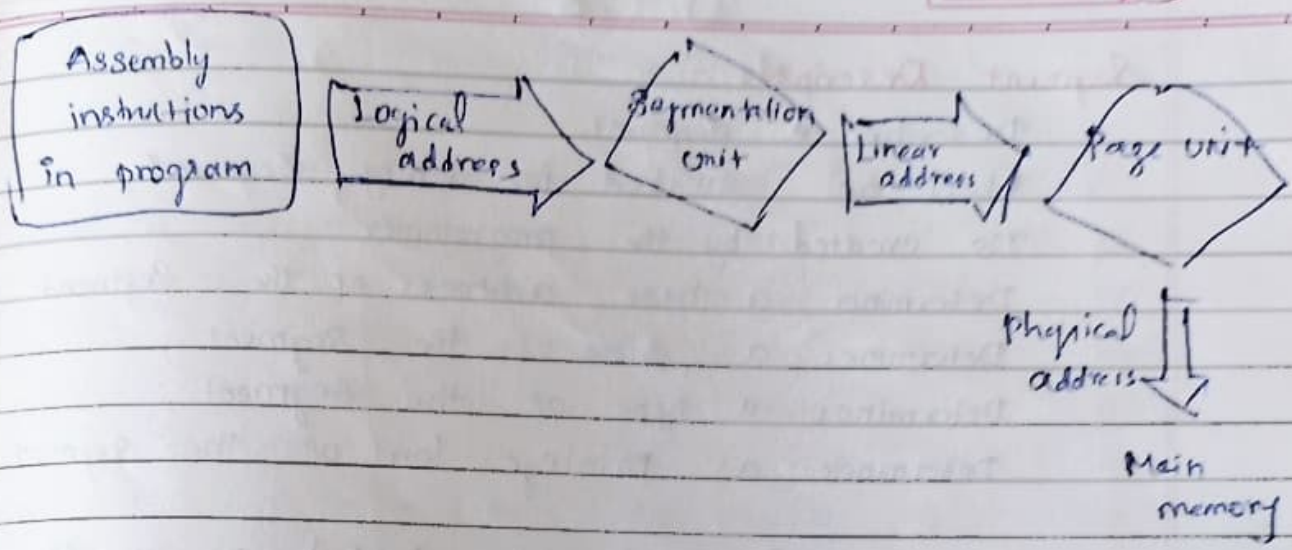 Assembly
instructions
in program
Logical
address
Segmentation
unit
Linear
address
Page unit
physical
address
Main
memory